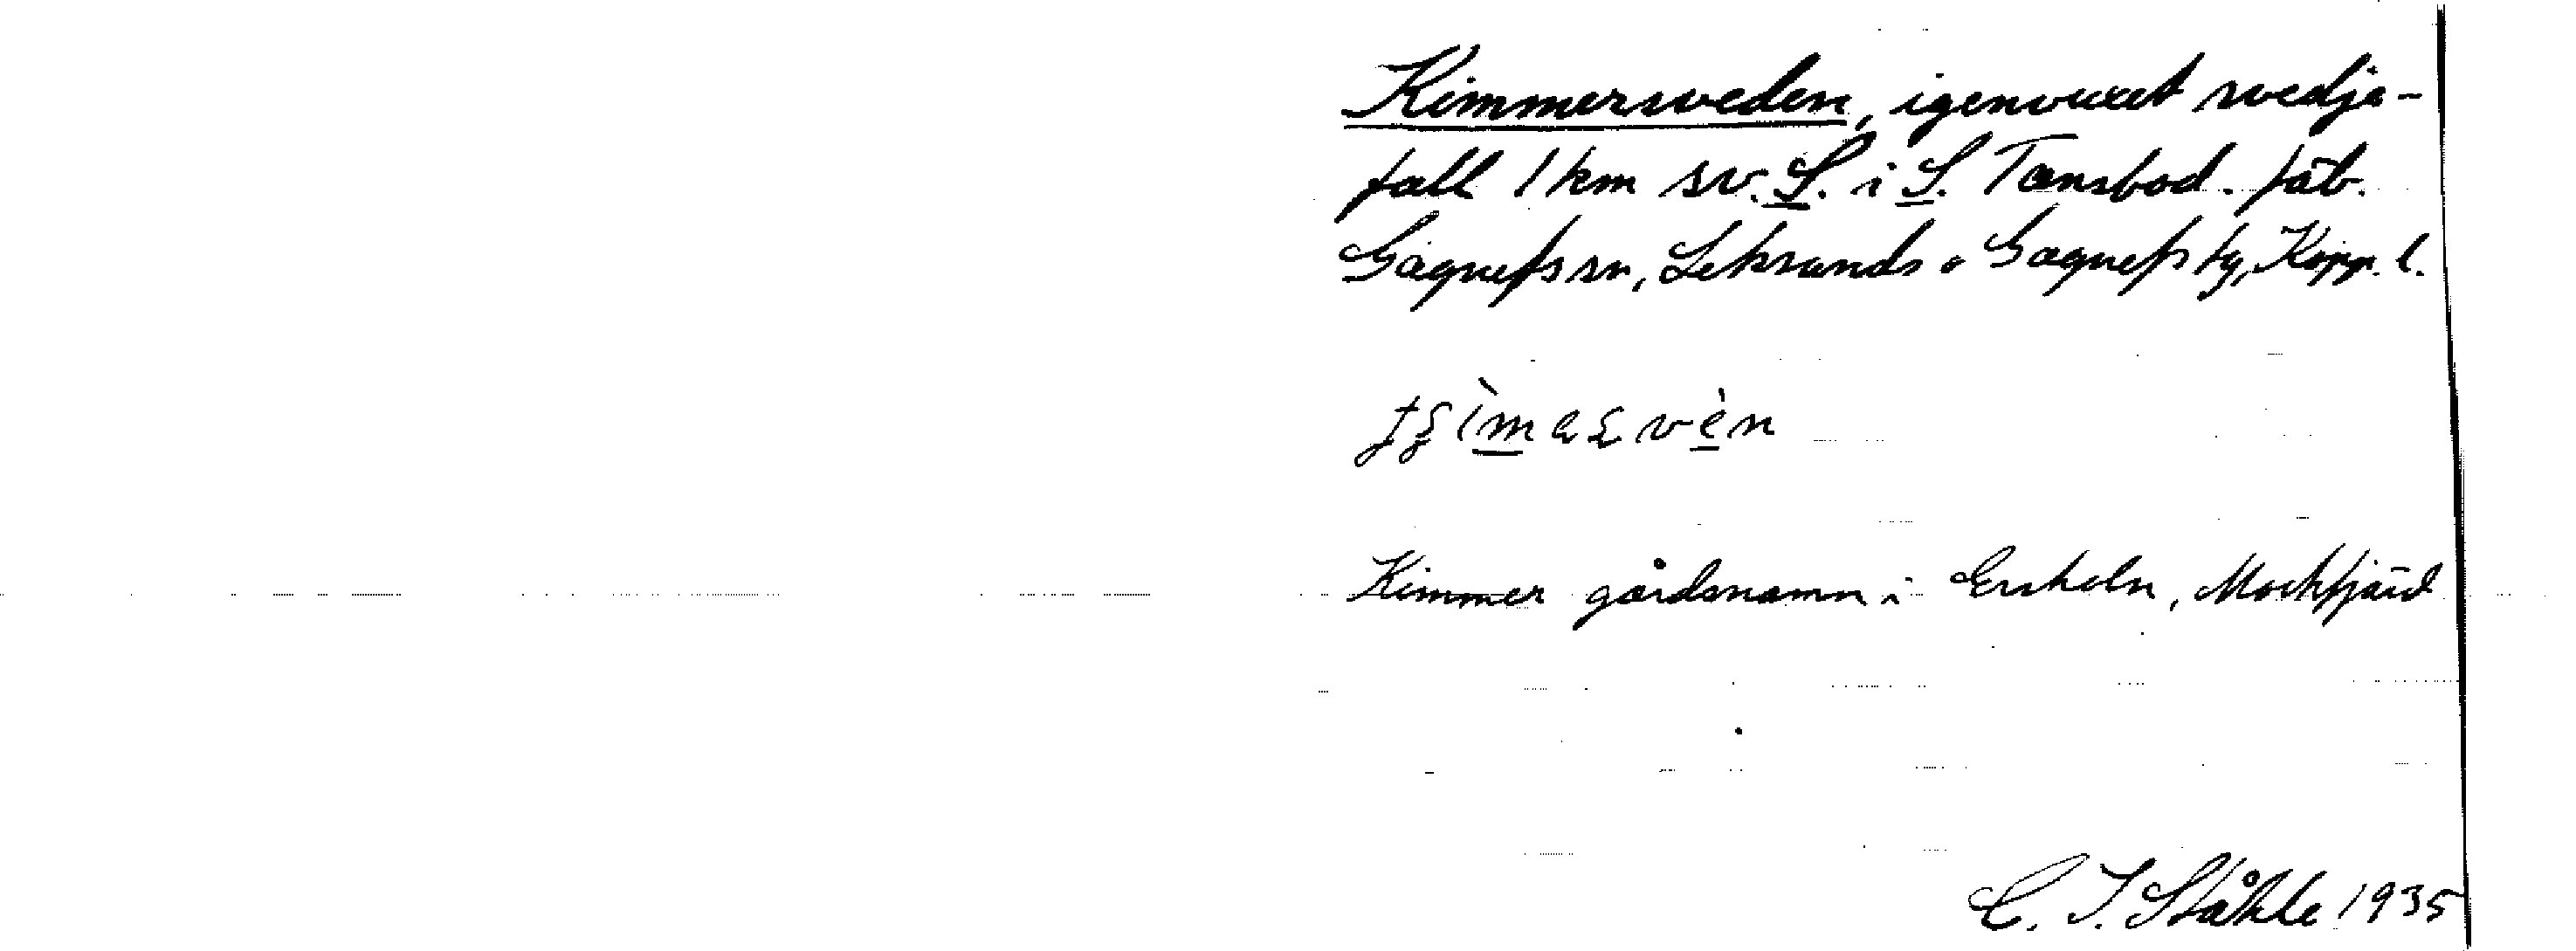 Kimmersveden, igenvuxet svedje-
fall 1 km sv. S. i S. Tansbod. fäb.
Gagnefs sn, Leksands o Gagnefs tg, Kopp. l.
Kimmer gårdsnamn i Ersholn, Mockfjärd
C. I. Ståhle 1935